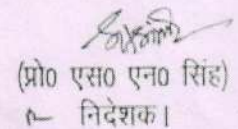 (प्रो० एस० एन० सिंह)
निदेशक।